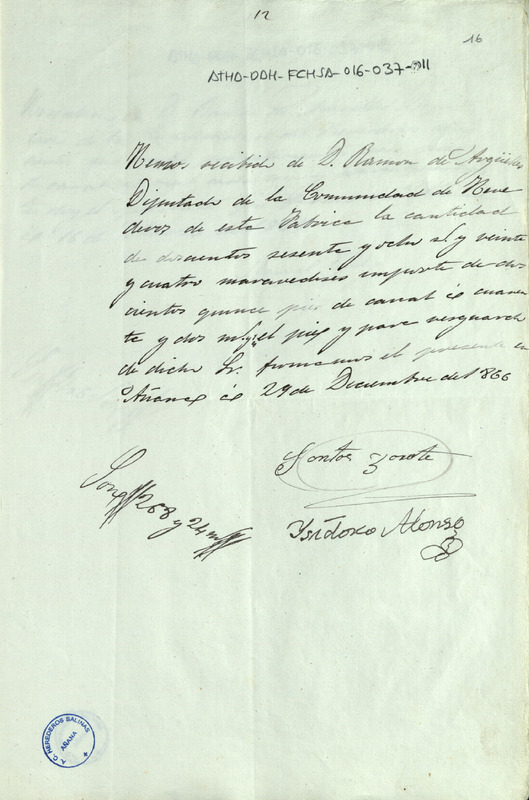 12
16
ATHA-DAH-FCHSA-016-037-011
Hemos recibido de D. Ramon de Argüelles
Diputado de la Comunidad de Here
deros de esta Fabrica la cantidad
de doscientos sesenta y ocho rs y veinte
y cuatro maravedises importe de dos
cientos quince pies de canal á cuaren
ta y dos mrs el pie y para resguardo
de dicho Sr. firmamos el presente en
Añana á 29 de Diciembre del 1866
Santos Zarate
Son 268 y 24 m
Ysidoro Alonso
T. C. HEREDEROS SALINAS
AÑANA